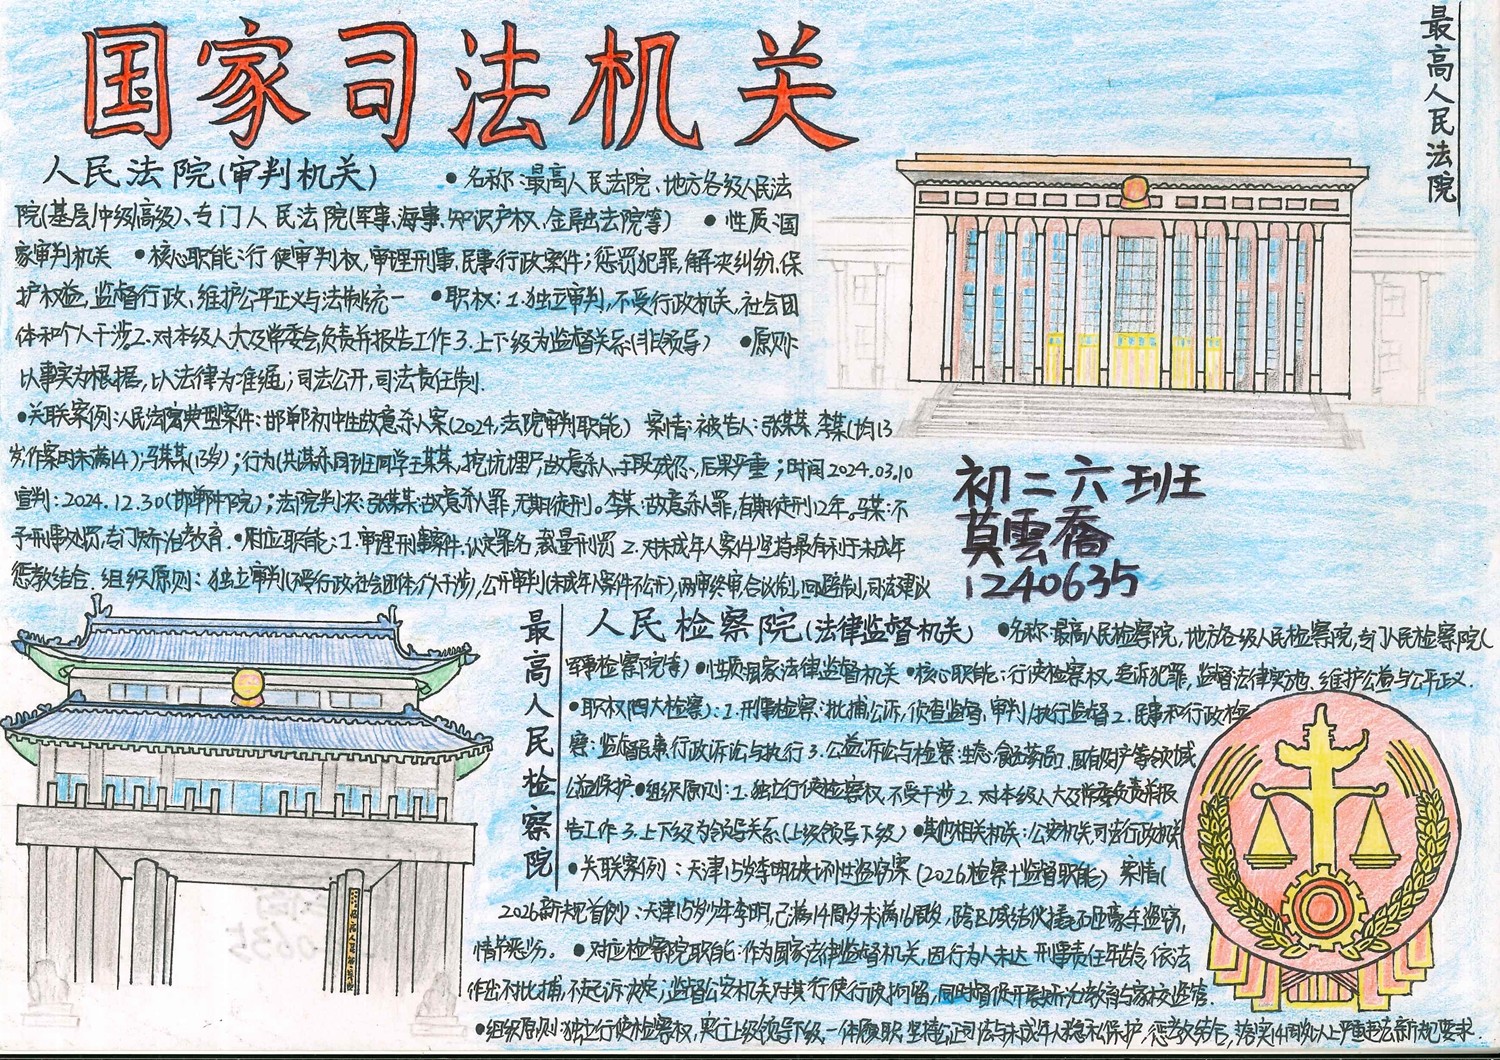 国家司法机关
最高人民法院
人民法院(审判机关)
•名称:最高人民法院、地方各级人民法
院(基层/中级/高级)、专门人民法院(军事、海事、知识产权、金融法院等) •性质:国
家审判机关 •核心职能:行使审判权,审理刑事、民事、行政案件;惩罚犯罪,解决纠纷,保
护权益,监督行政、维护公平正义与法制统一 •职权:1.独立审判,不受行政机关,社会团
体和个人干涉2.对本级人大及常委会负责并报告工作3.上下级为监督关系(非领导) •原则:
以事实为根据,以法律为准绳;司法公开,司法责任制.
•关联案例:人民法院典型案件:邯郸初中生故意杀人案(2024,法院审判职能) 案情:被告人:张某某、李某(均13
岁,作案时未满14)、马某某(13岁);行为(共谋杀同班同学王某某,挖坑埋尸,故意杀人,手段残忍,后果严重;时间2024.03.10
宣判:2024.12.30(邯郸中院);法院判决:张某某:故意杀人罪,无期徒刑。李某:故意杀人罪,有期徒刑12年。马某:不
予刑事处罚,专门矫治教育.•对应职能:1.审理刑事案件,认定罪名,裁量刑罚 2.对未成年人案件坚持最有利于未成年
惩教结合.组织原则:独立审判(不受行政社会团体个人干涉),公开审判(未成年人案件不公开),两审终审合议制,回避制,司法建议
初二六班
莫雲喬
1240635
最高人民检察院
人民检察院(法律监督机关) •名称:最高人民检察院,地方各级人民检察院,专门人民检察院(
军事检察院等)•性质:国家法律监督机关•核心职能:行使检察权,追诉犯罪,监督法律实施、维护公益与公平正义.
•职权(四大检察):1.刑事检察:批捕公诉,侦查监督,审判/执行监督2.民事和行政检
察:监督民事行政诉讼与执行3.公益诉讼与检察:生态食药品,国有财产等领域
公益保护•组织原则:1.独立行使检察权,不受干涉2.对本级人大及常委负责并报
告工作3.上下级为领导关系(上级领导下级)•其他相关机关:公安机关司法行政机关
•关联案例:天津15岁李明破坏性盗窃案(2026,检察+监督职能) 案情(
2026新规首例):天津15岁少年李明,已满14周岁未满16周岁,跨区域结伙撬砸豪车盗窃,
情节恶劣。 •对应检察院职能:作为国家法律监督机关,因行为人未达刑事责任年龄,依法
作出不批捕,不起诉决定;监督公安机关对其行使行政拘留,同时督促开展矫治教育与家校监管.
•组织原则:独立行使检察权,实行上级领导下级,一体履职,坚持公正司法与未成年人稳和保护,惩教结合,落实14周岁以上严重违法新规要求.